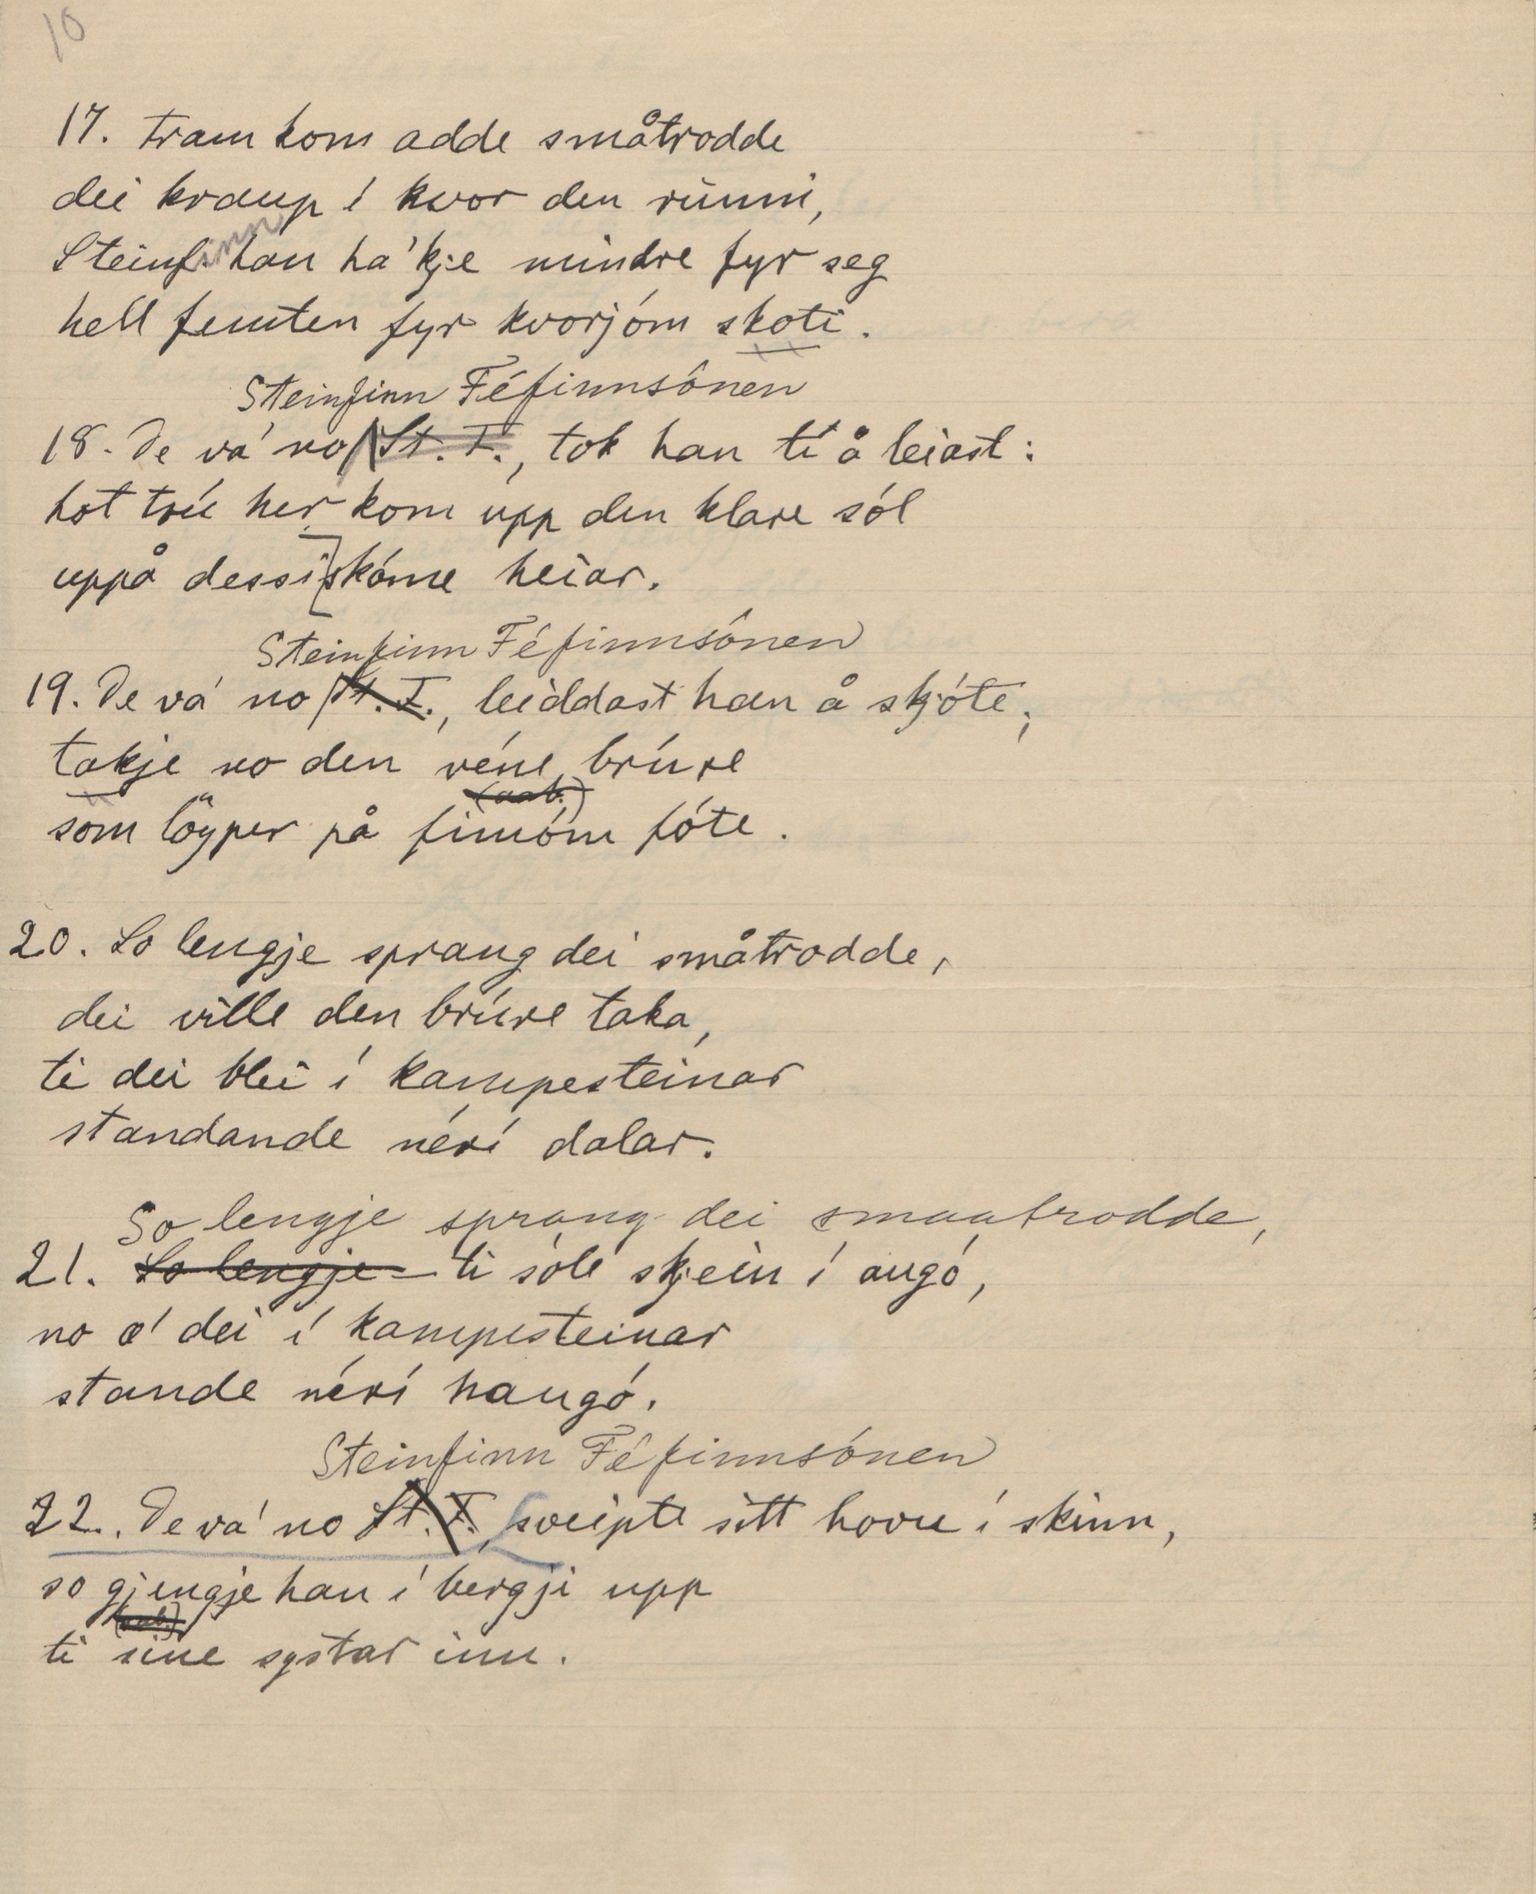 10
17. Fram kom adde småtrodde
dei kraup i kvor den runni,
Steinfinn han ha'kje mindre fyr seg
hell femten fyr kvorjóm skoti.
Steinfinn Féfinnsónen
18. De va' no St. F., tok han ti å leiast:
hot trú her kom upp den klare sól
uppå dessi skóme heiar.
Steinfinn Féfinnsónen
19. De va' no St. F., leiddast han å skjóte,
takje no den véne brúre
som löyper på fimóm fóte.
20. So lengje sprang dei småtrodde,
dei ville den brúre taka,
ti dei blei i kampesteinar
standande néri dalar.
So lengje sprang dei smaatrodde,
21. So lengje ti sóle skjein í augó,
no æ' dei í kampesteinar
stande néri haugó.
Steinfinn Féfinnsónen
22. De va' no St. F., sveipte sitt hovu í skinn,
so gjengje han í bergji upp
ti sine systar inn.